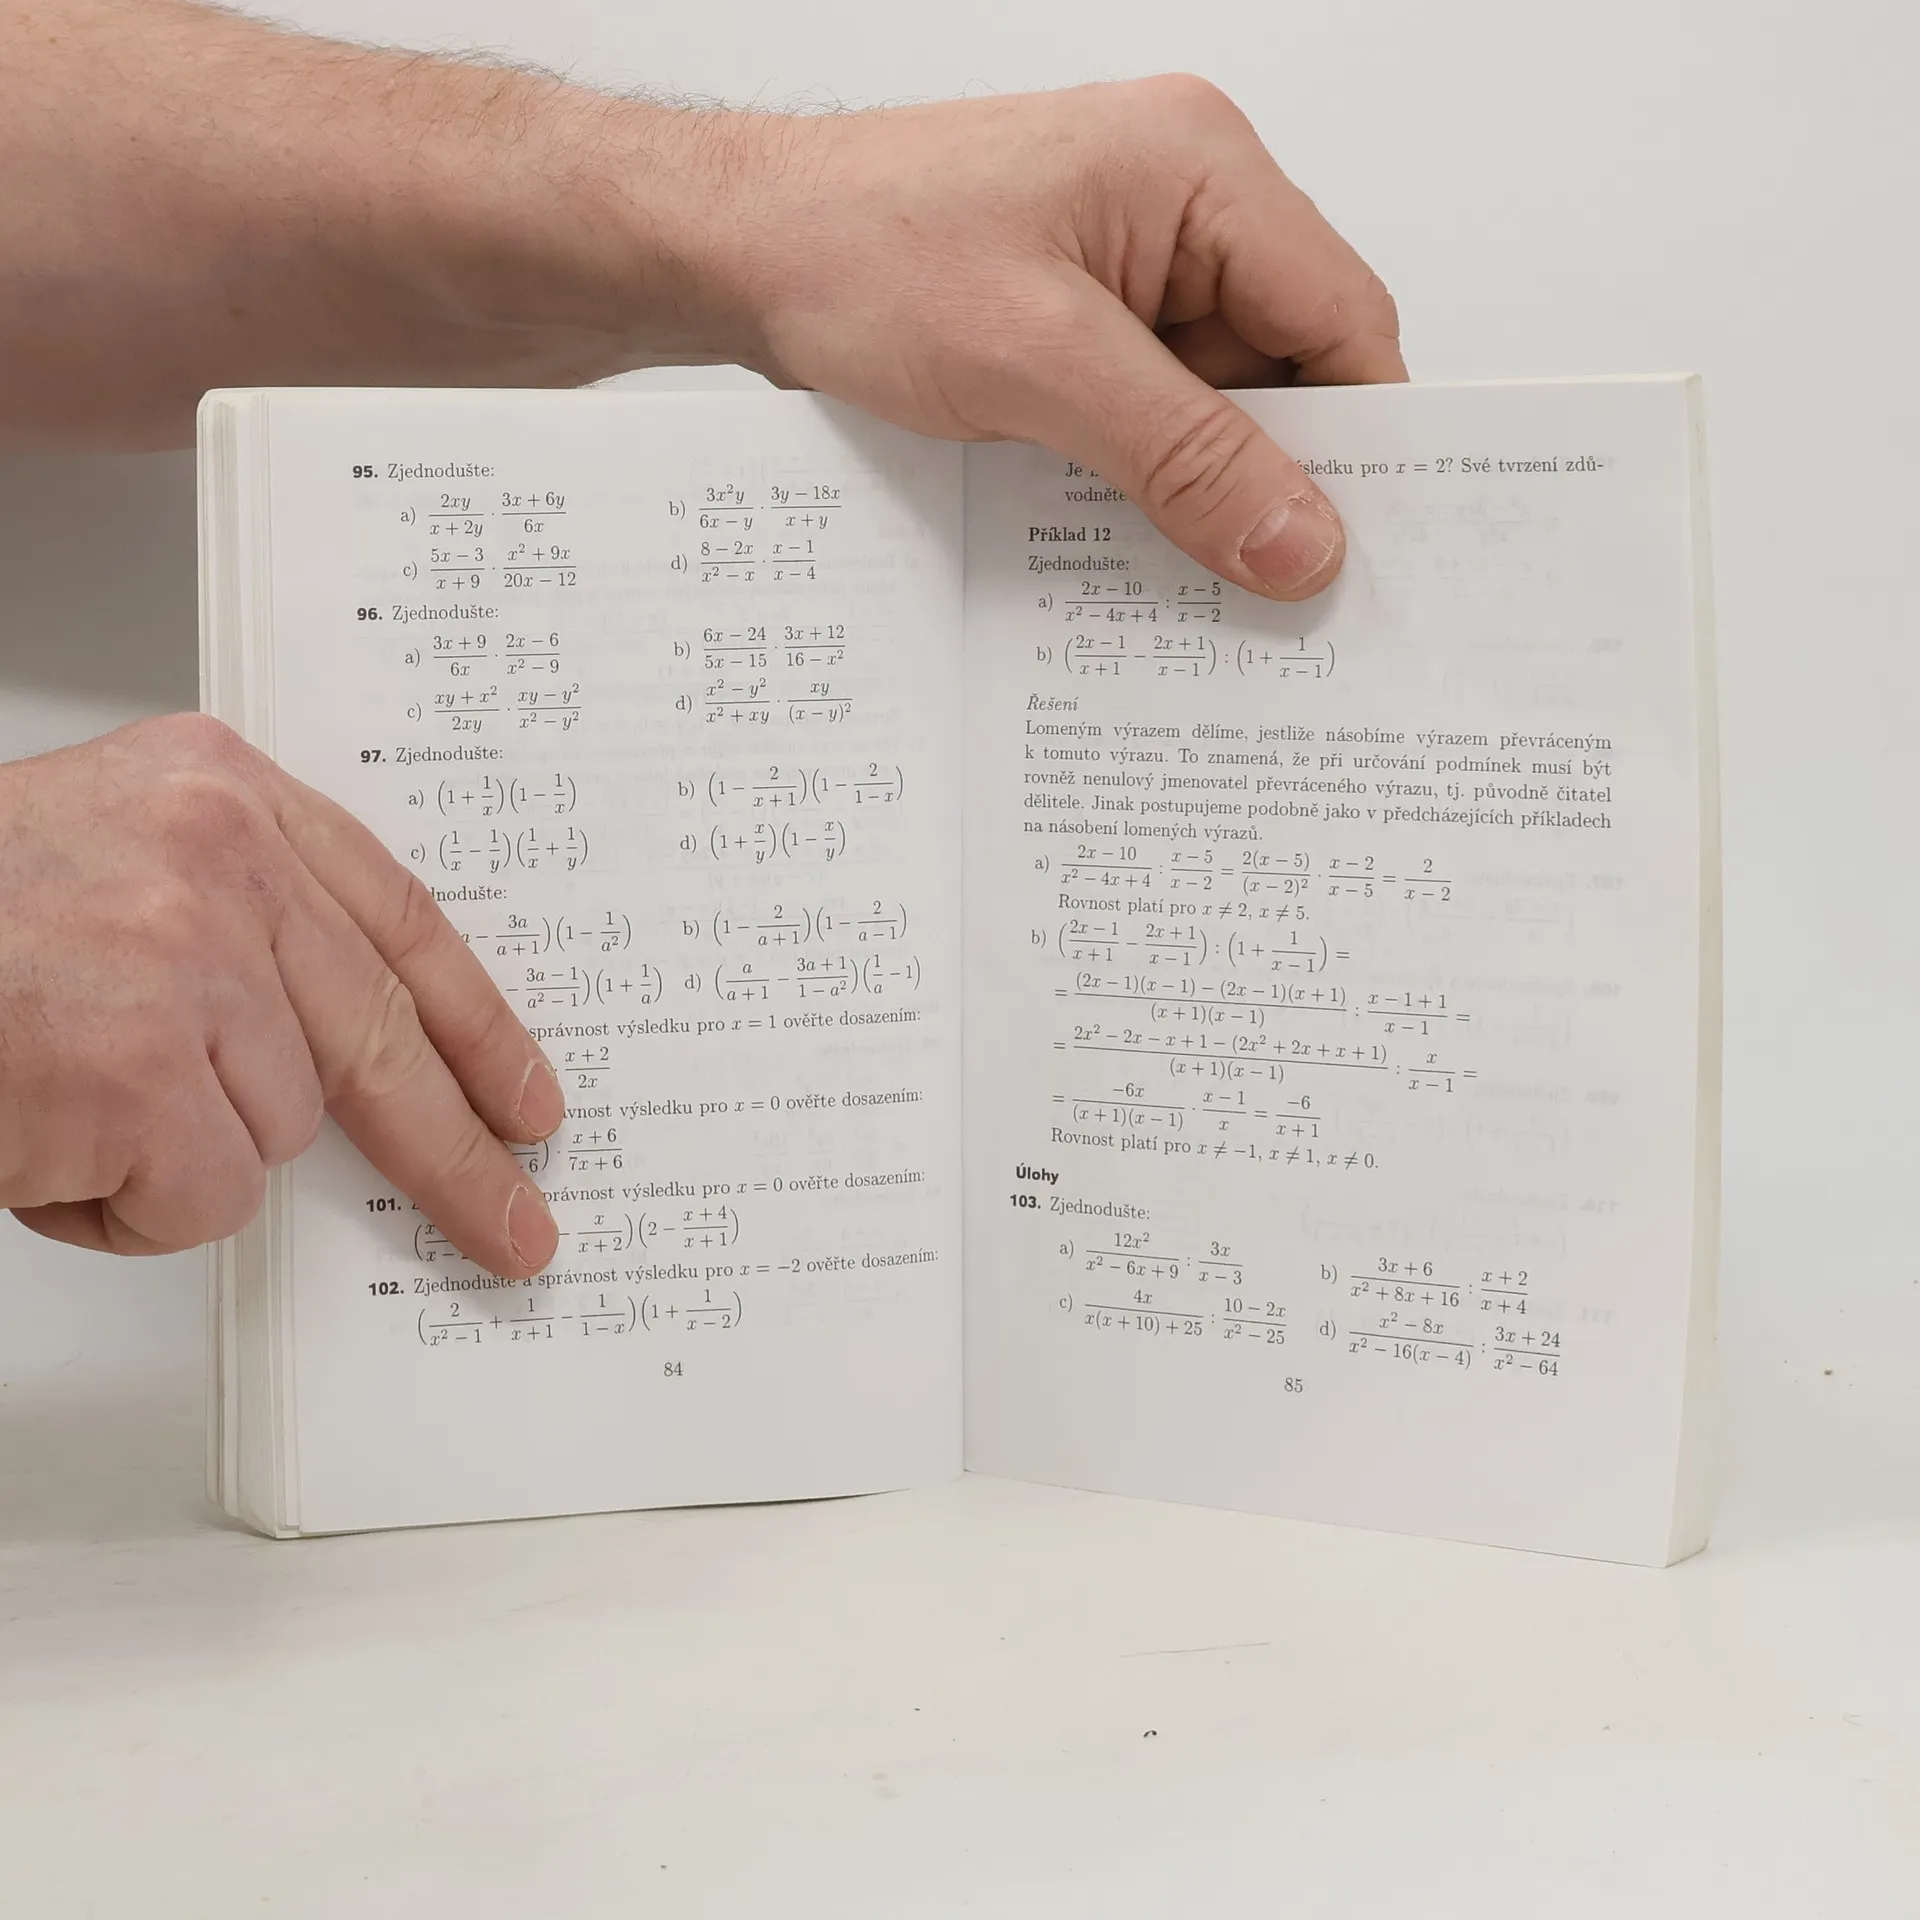 95. Zjednodušte:
a) \frac{2xy}{x + 2y} · \frac{3x + 6y}{6x} b) \frac{3x²y}{6x − y} · \frac{3y − 18x}{x + y}
c) \frac{5x − 3}{x + 9} · \frac{x² + 9x}{20x − 12} d) \frac{8 − 2x}{x² − x} · \frac{x − 1}{x − 4}
96. Zjednodušte:
a) \frac{3x + 9}{6x} · \frac{2x − 6}{x² − 9} b) \frac{6x − 24}{5x − 15} · \frac{3x + 12}{16 − x²}
c) \frac{xy + x²}{2xy} · \frac{xy − y²}{x² − y²} d) \frac{x² − y²}{x² + xy} · \frac{xy}{(x − y)²}
97. Zjednodušte:
a) (1 + \frac{1}{x})(1 − \frac{1}{x}) b) (1 − \frac{2}{x + 1})(1 − \frac{2}{1 − x})
c) (\frac{1}{x} − \frac{1}{y})(\frac{1}{x} + \frac{1}{y}) d) (1 + \frac{x}{y})(1 − \frac{x}{y})
dnodušte:
− \frac{3a}{a + 1})(1 − \frac{1}{a²}) b) (1 − \frac{2}{a + 1})(1 − \frac{2}{a − 1})
− \frac{3a − 1}{a² − 1})(1 + \frac{1}{a}) d) (\frac{a}{a + 1} − \frac{3a + 1}{1 − a²})(\frac{1}{a} − 1)
správnost výsledku pro x = 1 ověřte dosazením:
· \frac{x + 2}{2x}
výsledku pro x = 0 ověřte dosazením:
6) · \frac{x + 6}{7x + 6}
101. právnost výsledku pro x = 0 ověřte dosazením:
− \frac{x}{x + 2})(2 − \frac{x + 4}{x + 1})
102. Zjednodušte a správnost výsledku pro x = −2 ověřte dosazením:
(\frac{2}{x² − 1} + \frac{1}{x + 1} − \frac{1}{1 − x})(1 + \frac{1}{x − 2})
84
Je sledku pro x = 2? Své tvrzení zdů-
vodněte
Příklad 12
Zjednodušte:
a) \frac{2x − 10}{x² − 4x + 4} : \frac{x − 5}{x − 2}
b) (\frac{2x − 1}{x + 1} − \frac{2x + 1}{x − 1}) : (1 + \frac{1}{x − 1})
Řešení
Lomeným výrazem dělíme, jestliže násobíme výrazem převráceným
k tomuto výrazu. To znamená, že při určování podmínek musí být
rovněž nenulový jmenovatel převráceného výrazu, tj. původně čitatel
dělitele. Jinak postupujeme podobně jako v předcházejících příkladech
na násobení lomených výrazů.
a) \frac{2x − 10}{x² − 4x + 4} : \frac{x − 5}{x − 2} = \frac{2(x − 5)}{(x − 2)²} · \frac{x − 2}{x − 5} = \frac{2}{x − 2}
Rovnost platí pro x ≠ 2, x ≠ 5.
b) (\frac{2x − 1}{x + 1} − \frac{2x + 1}{x − 1}) : (1 + \frac{1}{x − 1}) =
= \frac{(2x − 1)(x − 1) − (2x − 1)(x + 1)}{(x + 1)(x − 1)} : \frac{x − 1 + 1}{x − 1} =
= \frac{2x² − 2x − x + 1 − (2x² + 2x + x + 1)}{(x + 1)(x − 1)} : \frac{x}{x − 1} =
= \frac{−6x}{(x + 1)(x − 1)} · \frac{x − 1}{x} = \frac{−6}{x + 1}
Rovnost platí pro x ≠ −1, x ≠ 1, x ≠ 0.
Úlohy
103. Zjednodušte:
a) \frac{12x²}{x² − 6x + 9} : \frac{3x}{x − 3} b) \frac{3x + 6}{x² + 8x + 16} : \frac{x + 2}{x + 4}
c) \frac{4x}{x(x + 10) + 25} : \frac{10 − 2x}{x² − 25} d) \frac{x² − 8x}{x² − 16(x − 4)} : \frac{3x + 24}{x² − 64}
85